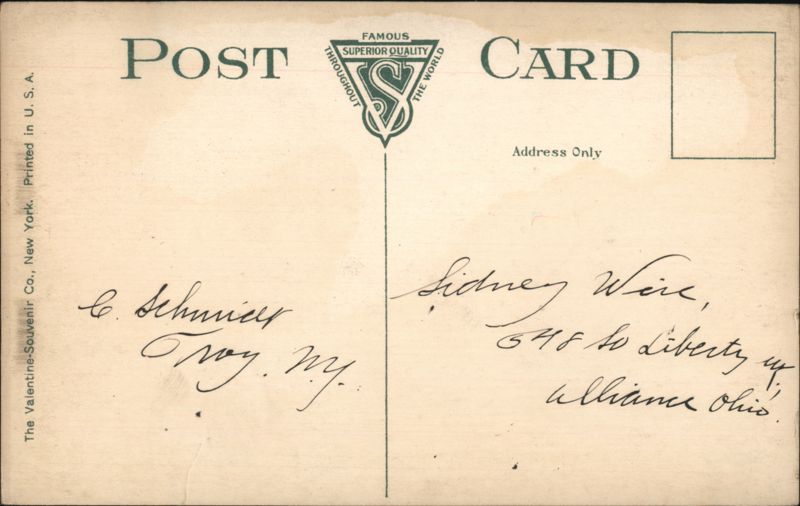 POST CARD
FAMOUS
SUPERIOR QUALITY
THROUGHOUT THE WORLD
VS
Address Only
The Valentine-Souvenir Co., New York. Printed in U. S. A.
C. Schmidt
Troy, N.Y.
Sidney Wire,
648 So Liberty
Alliance Ohio.